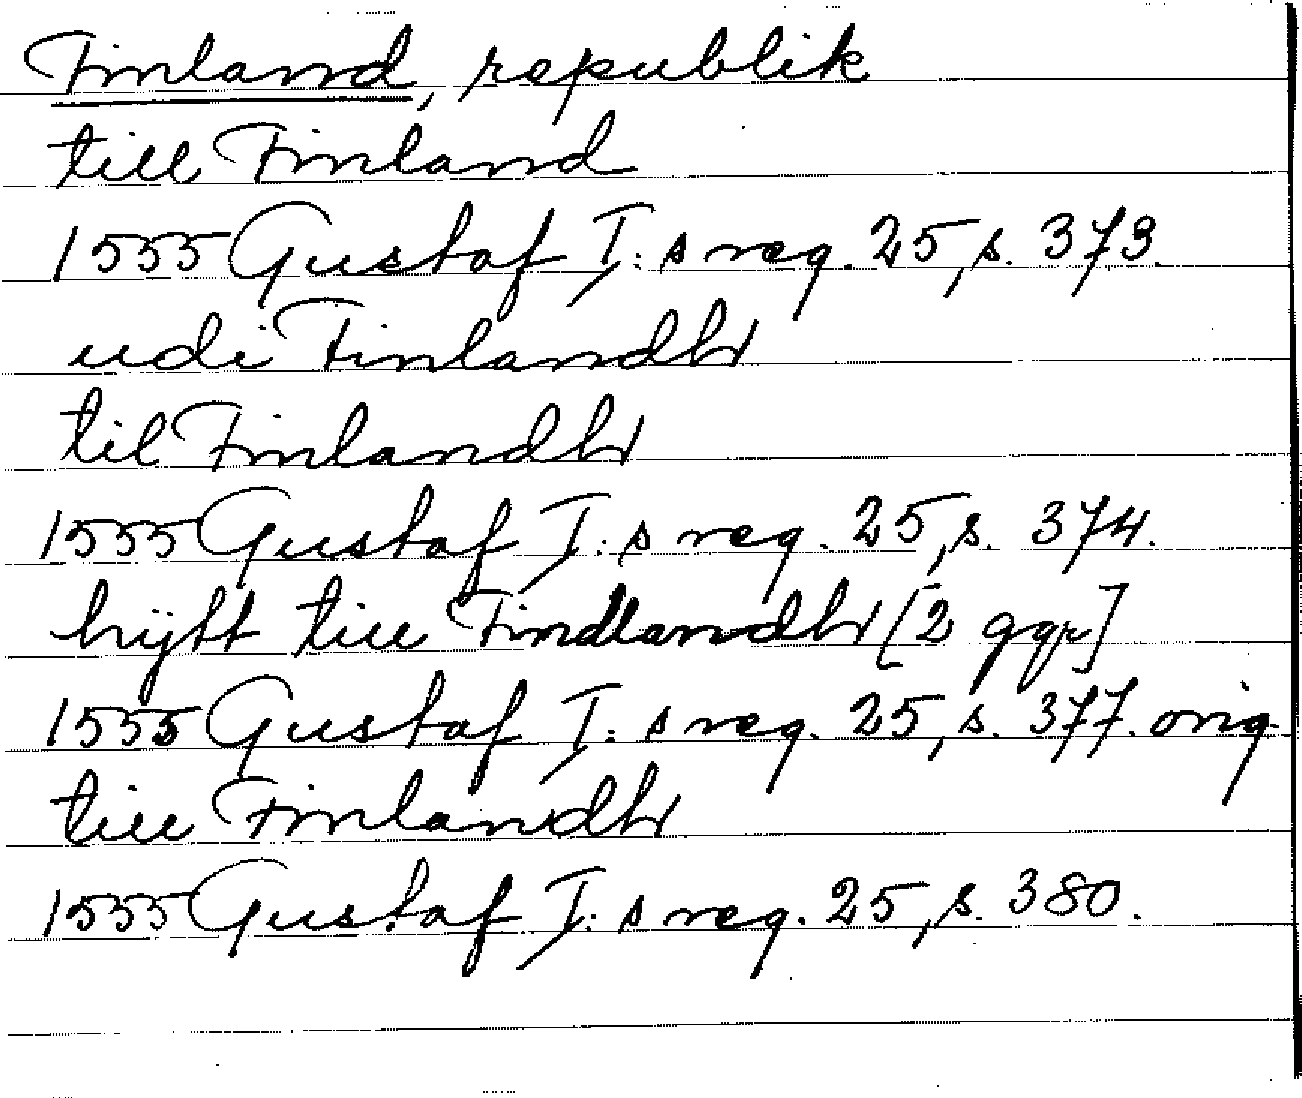 Finland, republik
till Finland
1555 Gustaf I:s reg. 25, s. 373.
udi Finlandh
til Finlandh
1555 Gustaf I:s reg. 25, s. 374.
hijtt till Findlandh [2 ggr]
1555 Gustaf I:s reg. 25, s. 377. orig.
till Finlandh
1555 Gustaf I:s reg. 25, s. 380.